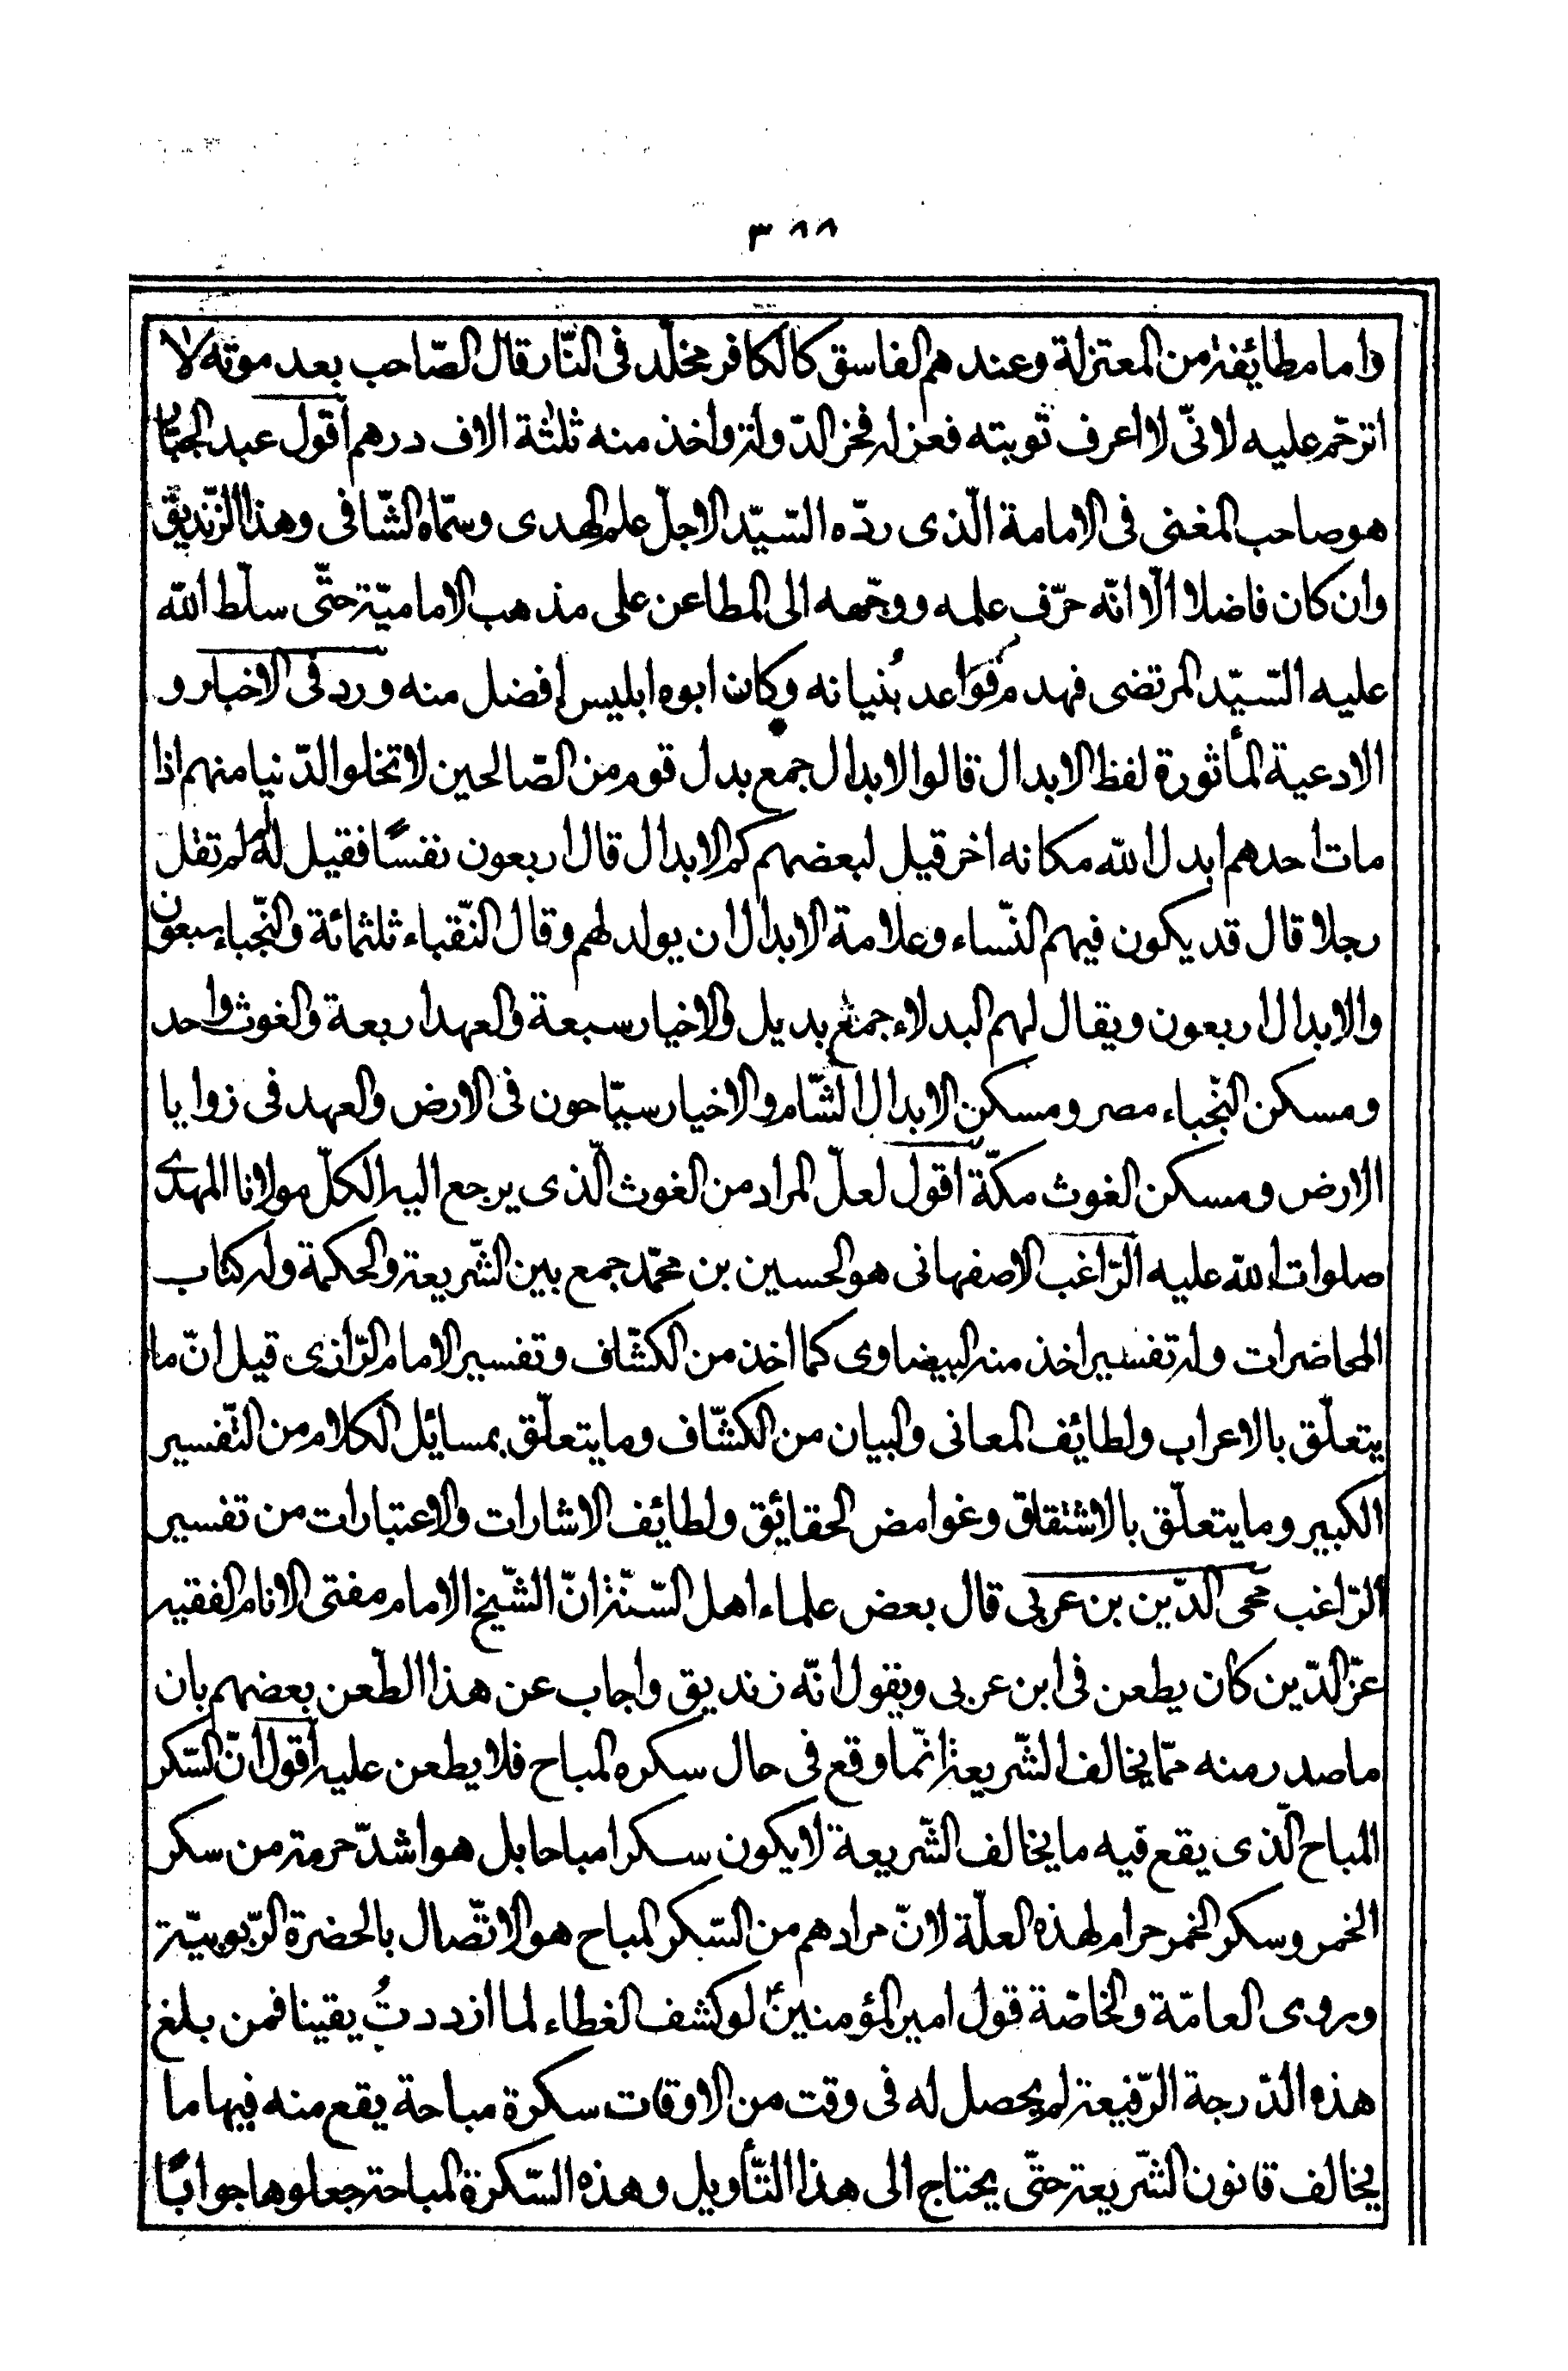 ٣٨٨
واماما مطائفة من المعتزلة وعندهم الفاسق كالكافر مخلّد فى النّار قال الصّاحب بعد موته لا
اترحّم عليه لانّى لا اعرف توبته فعزله فخر الدّولة واخذ منه ثلثة الاف درهم اقول عبد الجبّار
هو صاحب المغنى فى الامامة الّذى ردّه السّيّد الاجلّ علم الهدى وسمّاه الشّافى وهذا الزّنديق
وان كان فاضلا الّا انّه حرّف علمه ووجّهه الى المطاعن على مذهب الاماميّة حتّى سلّط الله
عليه السّيّد المرتضى فهدم قَوَاعد بُنيانه وكان ابوه ابليس افضل منه ورد فى الاخبار و
الادعية المأثورة لفظ الابدال قالوا الابدال جمع بدل قوم من الصّالحين لا تخلوا الدّنيا منهم اذا
مات احدهم ابدل الله مكانه اخر قيل لبعضهم كم الابدال قال اربعون نفسًا فقيل له لم تقل
رجلا قال قد يكون فيهم النّساء وعلامة الابدال ان يولد لهم وقال النّقباء ثلثمائة والنّجباء سبعون
والابدال اربعون ويقال لهم البدلاء جمع بديل والاخيار سبعة والعهد اربعة والغوث واحد
ومسكن النّجباء مصر ومسكن الابدال الشّام والاخيار سيّاحون فى الارض والعهد فى زوايا
الارض ومسكن الغوث مكّة اقول لعلّ المراد من الغوث الّذى يرجع اليه الكلّ مولانا المهدى
صلوات الله عليه الرّاغب الاصفهانى هو الحسين بن محمّد جمع بين الشّريعة والحكمة وله كتاب
المحاضرات وله تفسير اخذ منه البيضاوى كما اخذ من الكشّاف وتفسير الامام الرّازى قيل انّ ما
يتعلّق بالاعراب ولطائف المعانى والبيان من الكشّاف وما يتعلّق بمسائل الكلام من التّفسير
الكبير وما يتعلّق بالاشتقاق وغوامض الحقائق ولطائف الاشارات والاعتبارات من تفسير
الرّاغب محى الدّين بن عربى قال بعض علماء اهل السّنّة انّ الشّيخ الامام مفتى الانام الفقيه
عزّ الدّين كان يطعن فى ابن عربى ويقول انّه زنديق واجاب عن هذا الطّعن بعضهم بان
ما صدر منه ممّا يخالف الشّريعة انّما وقع فى حال سكره المباح فلا يطعن عليه اقول انّ السّكر
المباح الّذى يقع فيه ما يخالف الشّريعة لا يكون سكرا مباحا بل هو اشدّ حرمة من سكر
الخمر وسكر الخمر حرام لهذه العلّة لانّ مرادهم من السّكر المباح هو الاتّصال بالحضرة الرّبوبيّة
وروى العامّة والخاصّة قول امير المؤمنينؑ لو كشف الغطاء لما ازددتُ يقينا فمن بلغ
هذه الدّرجة الرّفيعة لم يحصل له فى وقت من الاوقات سكرة مباحة يقع منه فيها ما
يخالف قانون الشّريعة حتّى يحتاج الى هذا التّأويل وهذه السّكرة المباحة جعلوها جوابًا